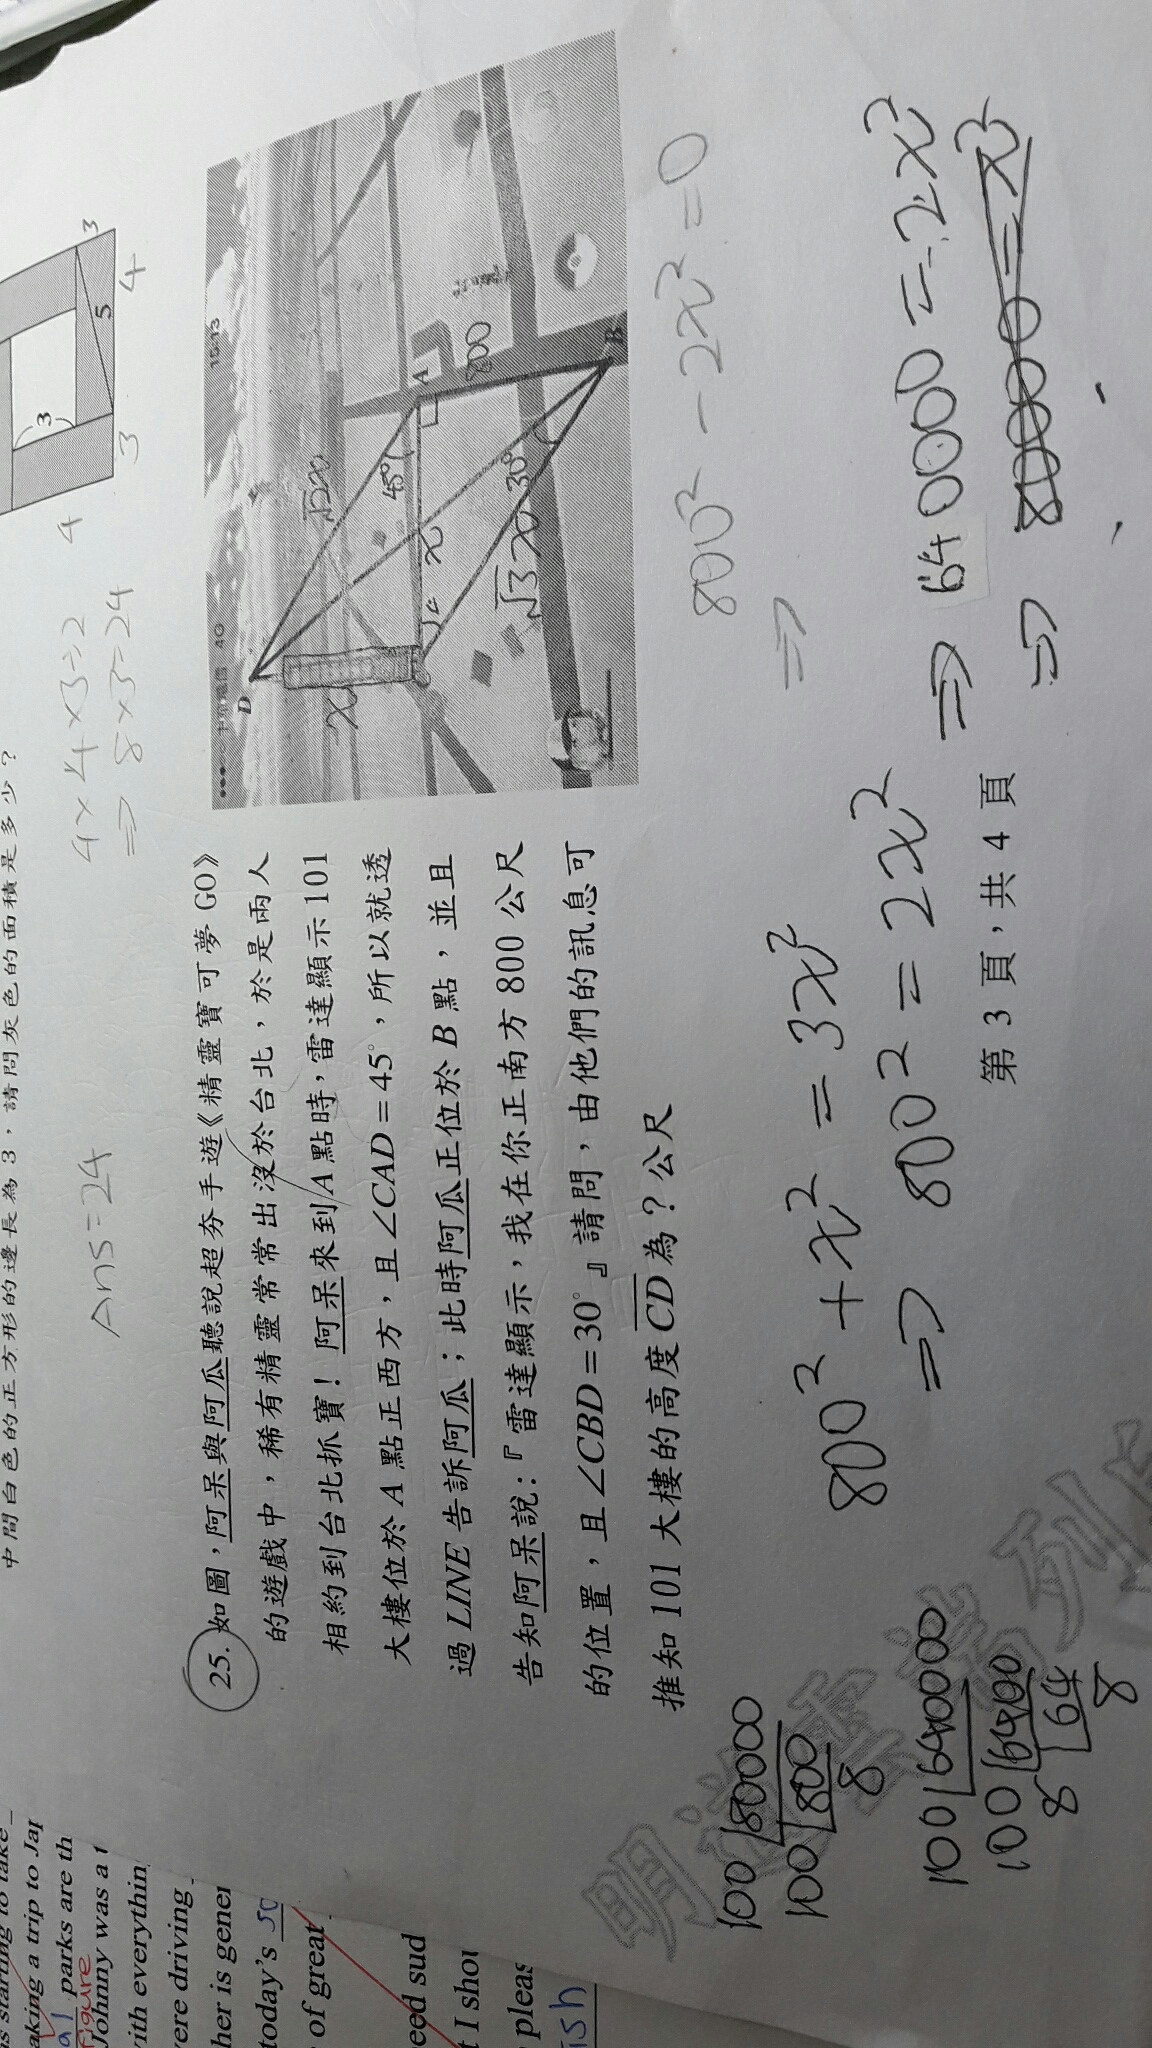 中間白色的正方形的邊長為3，請問灰色的面積是多少？
3
5
3
4
3
4
4×4×3÷2
⇒ 8×3=24
Ans=24
25. 如圖，阿呆與阿瓜聽說超夯手遊《精靈寶可夢 GO》
的遊戲中，稀有精靈常常出沒於台北，於是兩人
相約到台北抓寶！阿呆來到A點時，雷達顯示101
大樓位於A點正西方，且∠CAD=45°，所以就透
過LINE告訴阿瓜；此時阿瓜正位於B點，並且
告知阿呆說：『雷達顯示，我在你正南方800公尺
的位置，且∠CBD=30°』請問，由他們的訊息可
推知101大樓的高度CD為？公尺
中華電信 4G
15:13
D
A
B
C
x
√2x
45°
x
800
30°
√3x
800²-2x²=0
⇒
800²+x²=3x²
⇒ 800²=2x²
⇒ 640000=2x²
⇒ 80000=x²
100 80000
100 800
8
100 640000
100 6400
8 64
8
第 3 頁，共 4 頁
明潭
aking a trip to Ja
parks are th
figure
Johnny was a
ith everythin
ere driving
her is gener
today's so
of great
eed sud
I sho
pleas
ish